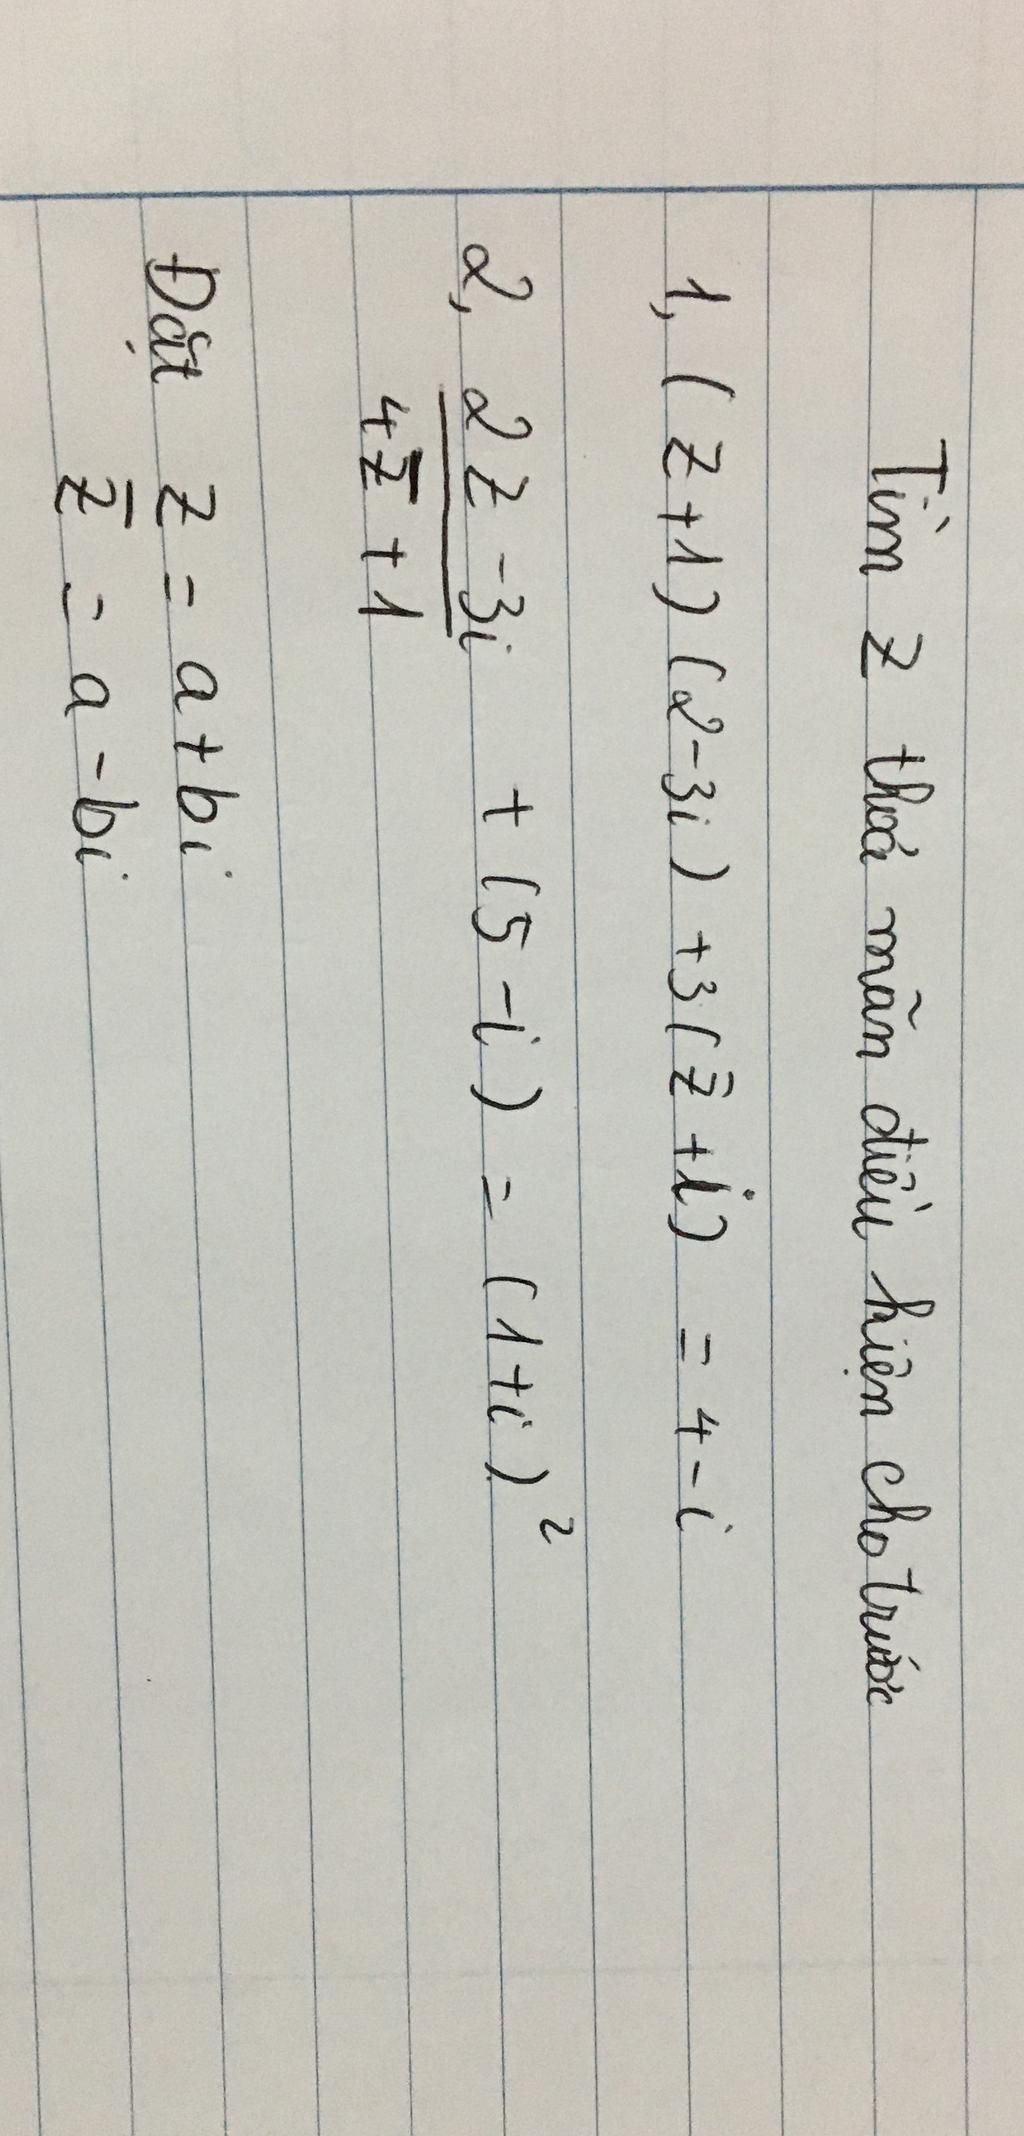 Tìm z thoả mãn điều kiện cho trước
1, (z+1)(2-3i) +3(z̄ +i) = 4-i
2, 2z -3i + (5-i) = (1+i)²
4z̄ +1
Đặt z = a+bi
z̄ = a-bi